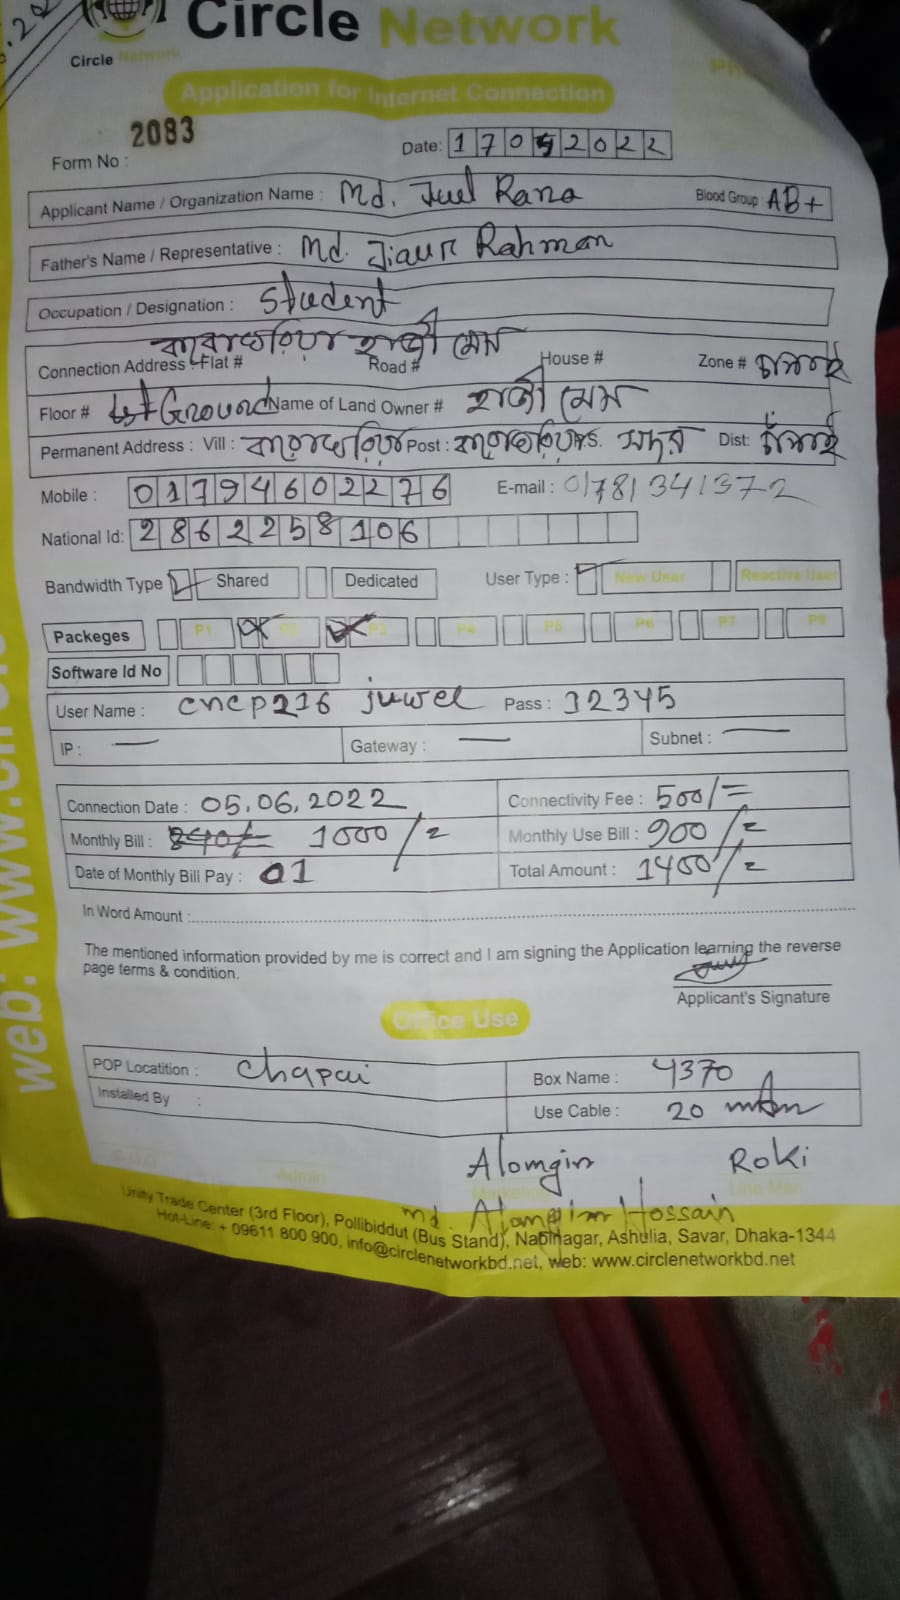 Circle Network
Circle Network
Application for Internet Connection
Form No : 2083
Date: 17052022
Applicant Name / Organization Name : Md. Juel Rana Blood Group : AB+
Father's Name / Representative : Md. Jiaur Rahman
Occupation / Designation : Student
বারোঘরিয়া হাজী মেস
Connection Address : Flat # Road # House # Zone # চাঁপাই
Floor # Ground Name of Land Owner # হাজী মেস
Permanent Address : Vill : বারোঘরিয়া Post : বারোঘরিয়া P.S. সদর Dist: চাঁপাই
Mobile : 01794602276 E-mail : 01781341372
National Id: 2862258106
Bandwidth Type Shared Dedicated User Type : New User Reactive User
Packeges P1 P2 P3 P4 P5 P6 P7 P8
Software Id No
User Name : cncp216 juwel Pass : 12345
IP : — Gateway : — Subnet : —
Connection Date : 05.06.2022 Connectivity Fee : 500/=
Monthly Bill : 840/= 1000/= Monthly Use Bill : 900/=
Date of Monthly Bill Pay : 01 Total Amount : 1400/=
In Word Amount :
The mentioned information provided by me is correct and I am signing the Application learning the reverse
page terms & condition.
Applicant's Signature
Office Use
POP Locatition : Chapai Box Name : 4370
Installed By : Use Cable : 20
Alomgir Roki
Admin Marketing Line Man
Md. Alamgir Hossain
Unity Trade Center (3rd Floor), Pollibiddut (Bus Stand), Nabinagar, Ashulia, Savar, Dhaka-1344
Hot-Line: + 09611 800 900, info@circlenetworkbd.net, web: www.circlenetworkbd.net
web: www.circle